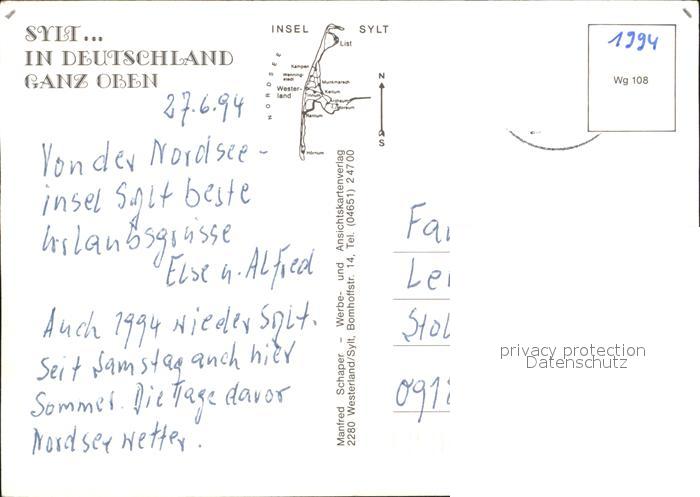 SYLT...
IN DEUTSCHLAND
GANZ OBEN
27.6.94
Von der Nordsee-
insel Sylt beste
Urlaubsgrüsse
Else u. Alfred
Auch 1994 wieder Sylt.
Seit Samstag auch hier
Sommer. Die Tage davor
Nordseewetter.
INSEL SYLT
NORDSEE
List
Kampen
Wenning-
stedt
Munkmarsch
Wester-
land
Keitum
Archsum
Morsum
Rantum
Hörnum
N
S
Manfred Schaper – Werbe- und Ansichtskartenverlag
2280 Westerland/Sylt, Bomhoffstr. 14, Tel. (04651) 24700
1994
Wg 108
Fa
Le
Sto
091
privacy protection
Datenschutz